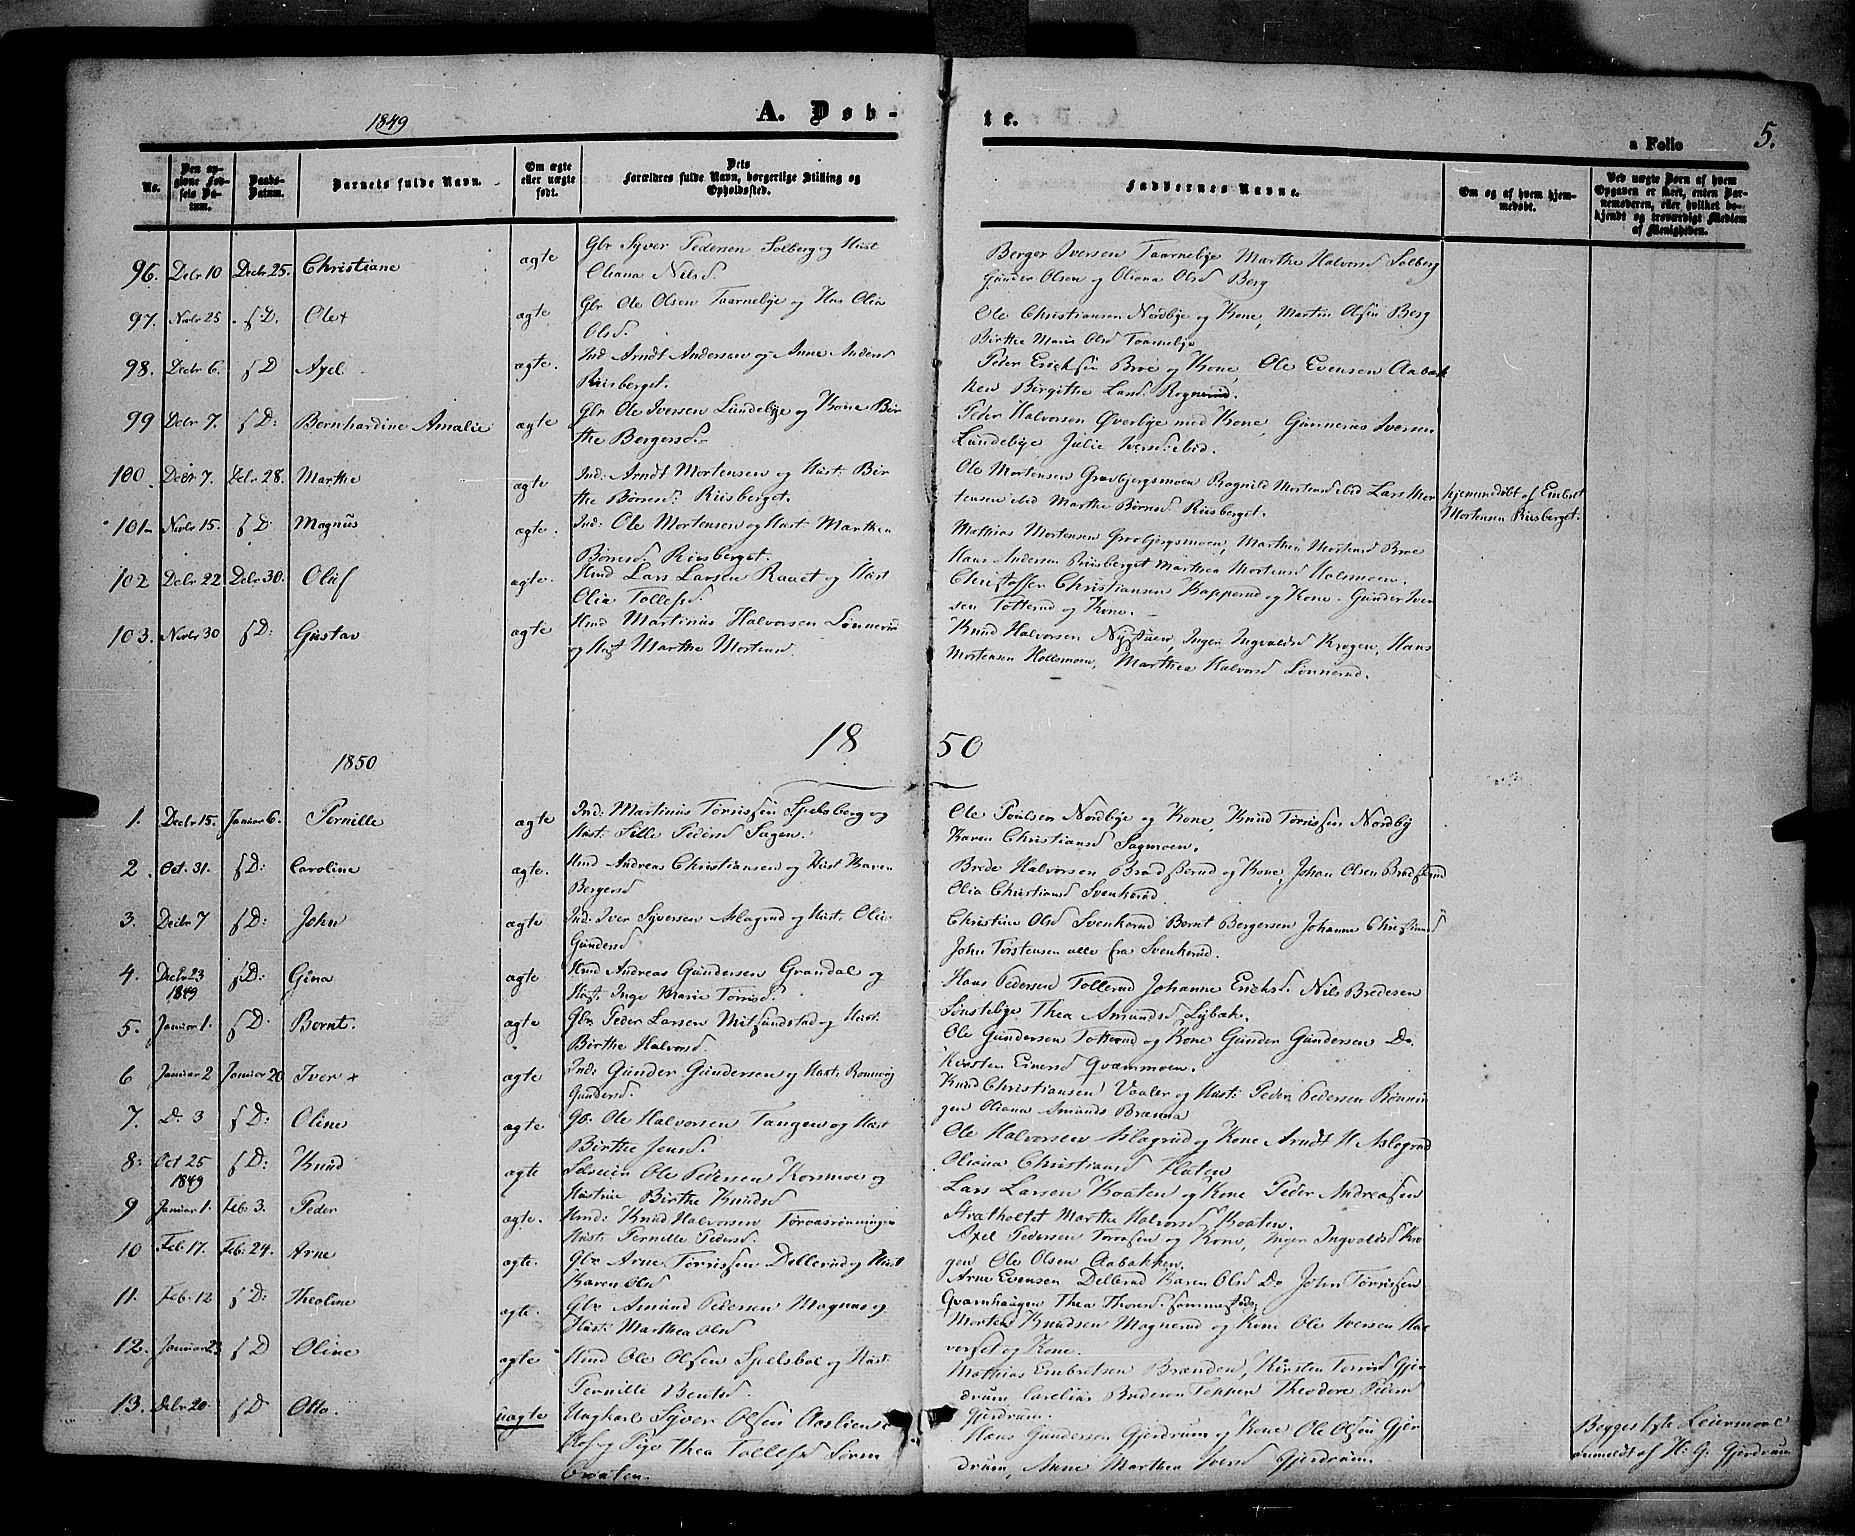 1849
A. Døb-
te.
a Folio
5.
No.
Den opgivne Fødsels Datum.
Daabs-Datum.
Barnets fulde Navn.
Om ægte eller uægte født.
Dets Forældres fulde Navn, borgerlige Stilling og Opholdssted.
Faddernes Navne.
Om og af hvem hjemmedøbt.
Ved uægte Børn af hvem Opgaven er skeet, enten Barnemoderen, eller hvilket bekjendt og troværdigt Medlem af Menigheden.
96. Decbr 10 Decbr 25. Christiane ægte Gbr Syver Pedersen Solberg og Hust
Oliana Nilsd
Berger Iversen Taarnebye Marthe Halvorsd Solberg
Gunder Olsen og Oliana Olsd Berg
97. Novbr 25 s. D. Ole + ægte Gbr Ole Olsen Taarnebye og Hus Olia
Olsd.
Ole Christiansen Nordbye og Kone, Martin Olsen Berg
Birthe Maria Olsd Taarnebye
98. Decbr 6. s D Axel ægte. Ind Arndt Andersen og Anne Andersd
Riisberget.
Peder Ericksen Broe og Kone, Ole Evensen Aabak
ken Birgithe Larsd. Rognerud.
99 Decbr 7. s D: Bernhardine Amalie ægte Gbr Ole Iversen Lundebye og Kone Bir
the Bergersd.
Peder Halvorsen Øverbye med Kone, Gunnerius Iversen
Lundebye Julie Iversd ibid.
100. Decbr 7. Decbr 28. Marthe ægte Ind: Arndt Mortensen og Hust: Bir
the Børresd: Riisberget.
Ole Mortensen Gravbjergsmoen Rognild Mortensd ibid Lars Mor
tensen ibid Marthe Børresd Riisberget.
hjemmedøbt af Embret
Mortensen Riisberget.
101 Novbr 15. s D: Magnus ægte. Ind: Ole Mortensen og Hust Marthea
Børresd Riisberget.
Mathias Mortensen Gravbjergsmoen, Marthea Mortensd Broe
Hans Andersen Riisberget Marthea Mortensd Holsmoen.
102 Decbr 22 Decbr 30. Oluf ægte. Hmd Lars Larsen Rauet og Hust
Olia Tollefsd.
Christoffer Christiansen Kapperud og Kone. Gunder Iver
sen Totterud og Kone.
103. Novbr 30 s D: Gustav ægte Hmd Martinus Halvorsen Linnerud
og Hust Marthe Mortensd.
Knud Halvorsen Nystuen, Inger Ingvaldsd Krogen, Hans
Mortensen Holsmoen, Marthea Halvorsd Linnerud.
18 50
1850
1. Decbr 15. Januar 6. Pernille ægte Ind: Martinus Tørrissen Spelsberg og
Hust: Sille Pedersd Sagen.
Ole Poulsen Nordbye og Kone, Knud Tørrissen Nordby
Karen Christiansd Sagmoen.
2. Oct. 31. s D: Caroline ægte. Hmd Andreas Christiansen og Hust Karen
Bergersd
Brede Halvorsen Bradsterud og Kone, Johan Olsen Bradsterud
Olia Christiansd Svenkerud
3. Decbr 7 s D: John ægte Ind: Iver Syversen Aslagrud og Hust: Olia
Gundersd
Christine Olsd Svenkerud Bernt Bergersen Johanne Christiansd
John Torstensen alle fra Svenkerud.
4. Decbr 23
1849 s D: Gina ægte Hmd Andreas Gundersen Grandal og
Hust: Inge Marie Tørrisd.
Hans Pedersen Tollerud Johanne Ericksd. Nils Bredesen
Sønstebye Thea Amundsd Lybak.
5. Januar 1. s D: Bernt. ægte Gbr. Peder Larsen Mitsundstad og Hust:
Birthe Halvorsd.
Ole Gundersen Totterud og Kone Gunder Gundersen Do.
Kirsten Einersd Qvammoen.
6 Januar 2 Januar 20 Iver + ægte Ind: Gunder Gundersen og Hust: Ronnoug
Gundersd.
Knud Christiansen Vaaler og Hust: Peder Pedersen Rønnin
gen Oliana Amunds Brænna
7. D. 3 s D: Oline ægte Gbr Ole Halvorsen Tangen og Hust
Birthe Jensd.
Ole Halvorsen Aslagrud og Kone Arndt H Aslagrud
Oliana Christiansd Flaten
8. Oct 25
1849 s D: Knud ægte Ole Pedersen Korsmoe og
Hustrue Birthe Knudsd
Lars Larsen Kvaten og Kone Peder Andreassen
Stratholtet Marthe Halvorsd Kvaten.
9 Januar 1. Feb. 3. Peder ægte. Hmd: Knud Halvorsen Torvasrønningen
Hust: Pernille Pedersd.
Axel Pedersen Torvasen og Kone, Inger Ingvaldsd Kro
gen Ole Olsen Aabakken.
10 Feb. 17. Feb. 24. Arne ægte. Gbr Arne Tørrissen Dellerud og Hust
Karen Olsd
Arne Evensen Dellerud Karen Olsd Do John Tørrissen
Qvernhaugen Thea Thorsd. sammesteds:
11. Feb. 12 s D: Theoline ægte. Gbr Amund Pedersen Magnus og
Hust: Marthea Olsd
Morten Knudsen Magnerud og Kone Ole Iversen Hal
vorset og Kone.
12. Januar 23 s D Oline ægte Hmd Ole Olsen Spelsbol og Hust:
Pernille Bentsd.
Mathias Embretsen Brænden, Kirsten Torresd Gjer
drum Caroline Bredesen Teppen Theodore Pedersd
Gjerdrum.
13. Decbr 20 s D Otto. uægte Ungkarl Syver Olsen Aaslien
og Pige Thea Tollefsd
Hans Gundersen Gjerdrum og Kone Ole Olsen Gjer
drum, Anne Marthea Iversd Gjerdrum.
Begges 1ste Leiermaal
anmeldt af H: G: Gjerdrum